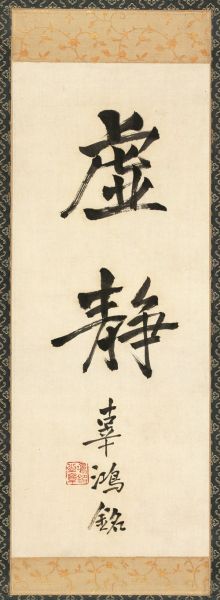 虛靜
辜鴻銘